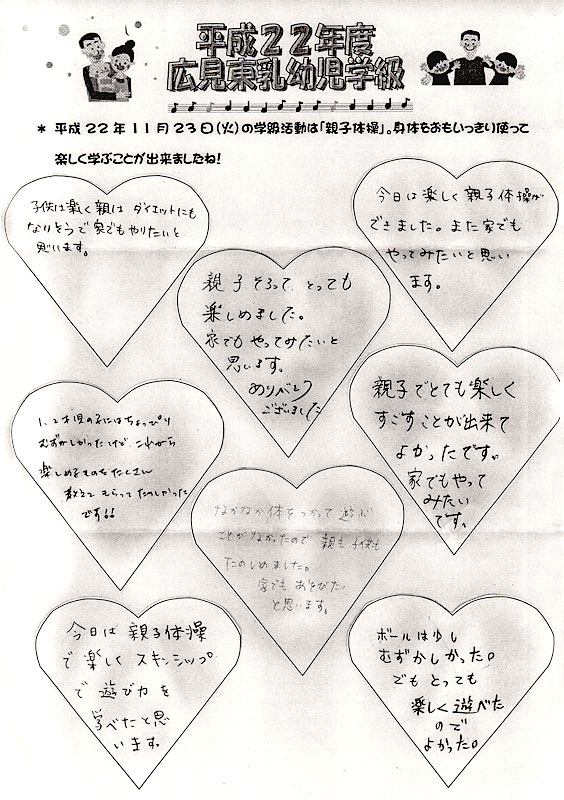 平成22年度
広見東乳幼児学級
* 平成22年11月23日(火)の学級活動は「親子体操」。身体をおもいっきり使って
楽しく学ぶことが出来ましたね!
子供は楽しく親は ダイエットにも
なりそうで家でもやりたいと
思います。
今日は楽しく親子体操が
できました。また家でも
やってみたいと思い
ます。
親子そろって、とっても
楽しめました。
家でもやってみたいと
思います。
ありがとう
ございました
親子でとても楽しく
すごすことが出来て
よかったです。
家でもやって
みたい
です。
1、2才児の子にはちょっぴり
むずかしかったけど、これから
楽しめるものをたくさん
教えてもらってたのしかった
です!!
なかなか体をつかって遊ぶ
ことがなかったので 親も子供も
たのしめました。
家でもあそびたい
と思います。
今日は親子体操
で楽しくスキンシップ
で遊び力を
学べたと思
います。
ボールは少し
むずかしかった。
でもとっても
楽しく遊べた
ので
よかった。